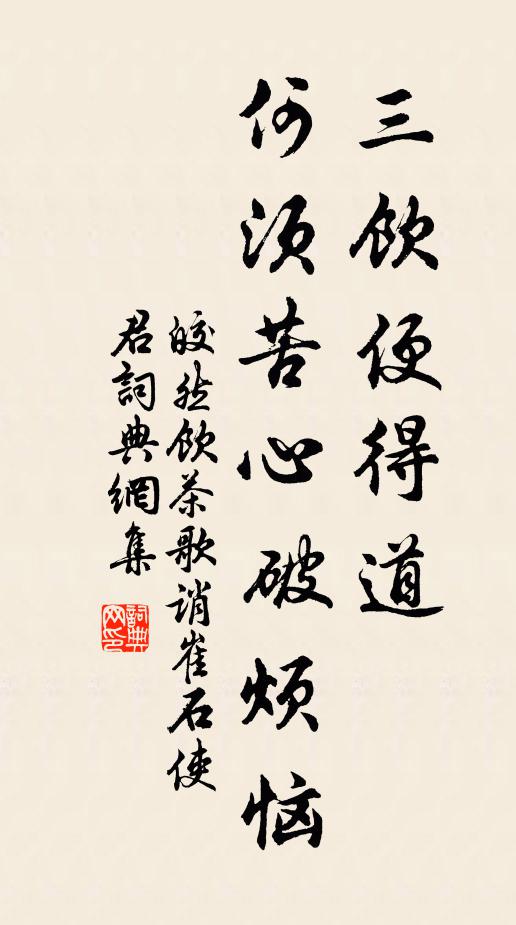 三饮便得道
何须苦心破烦恼
皎然饮茶歌诮崔石使
君詞典網集
詞典网印